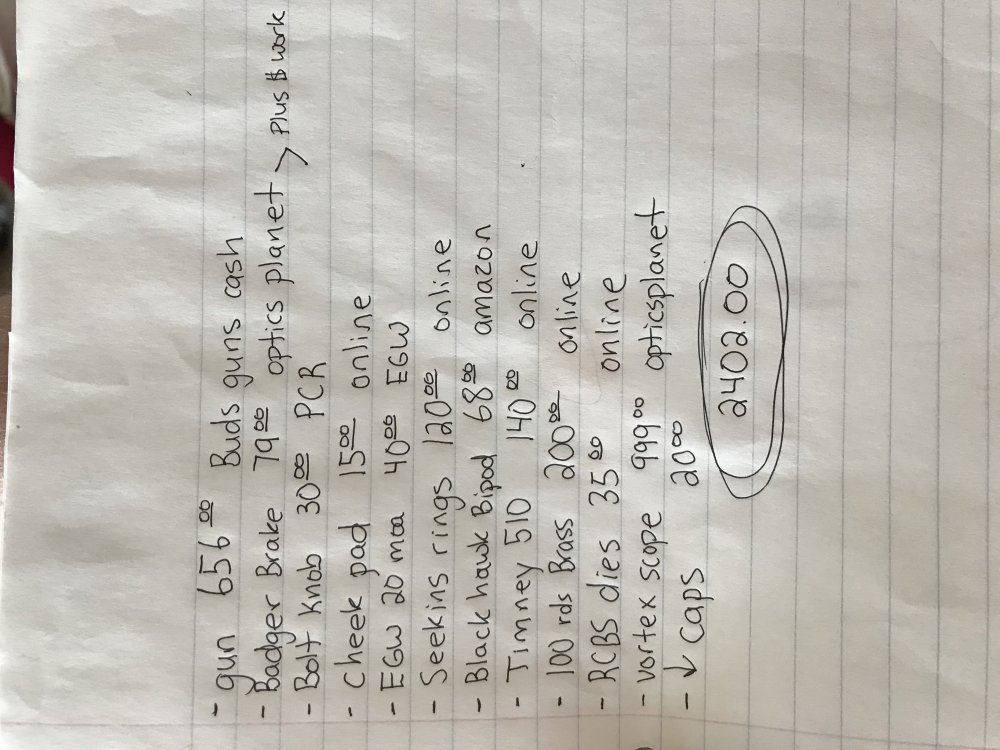 - gun 656.00 Buds guns cash
- Badger Brake 79.00 optics planet > Plus $ work
- Bolt Knob 30.00 PCR
- Cheek pad 15.00 online
- EGW 20 moa 40.00 EGW
- Seekins rings 120.00 online
- Black hawk Bipod 68.00 amazon
- Timney 510 140.00 online
- 100 rds Brass 200.00 online
- RCBS dies 35.00 online
- vortex scope 999.00 opticsplanet
- ↓ caps 20.00
2402.00